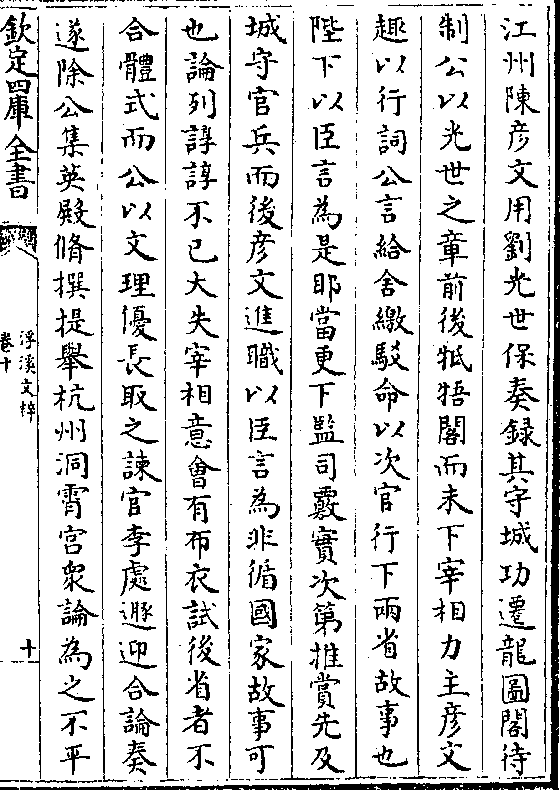 江州陳彦文用劉光世保奏録其守城功遷龍圖閣待
制公以光世之章前後牴牾閣而未下宰相力主彦文
趣以行詞公言給舍繳駮命以次官行下兩省故事也
陛下以臣言為是耶當更下監司覈實次第推賞先及
城守官兵而後彦文進職以臣言為非循國家故事可
也論列諄諄不已大失宰相意會有布衣試後省者不
合體式而公以文理優長取之諫官李處遯迎合論奏
遂除公集英殿脩撰提舉杭州洞霄宫衆論為之不平
欽定四庫全書
浮溪文粹
卷十
十